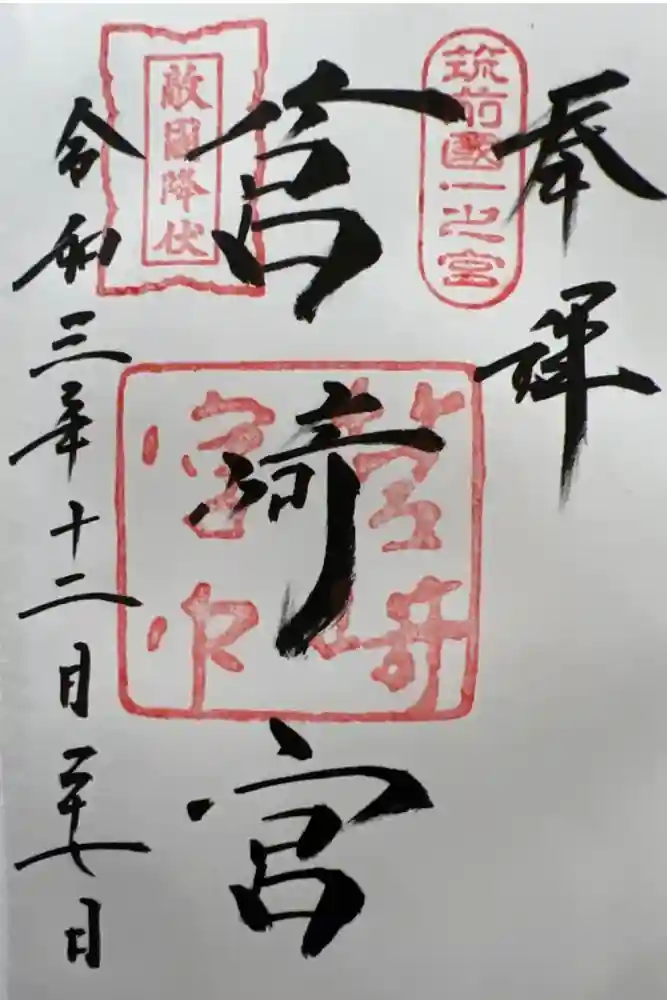 奉拝
筑前國一之宮
筥崎宮
筥崎
宮印
敵國降伏
令和三年十二月二十七日